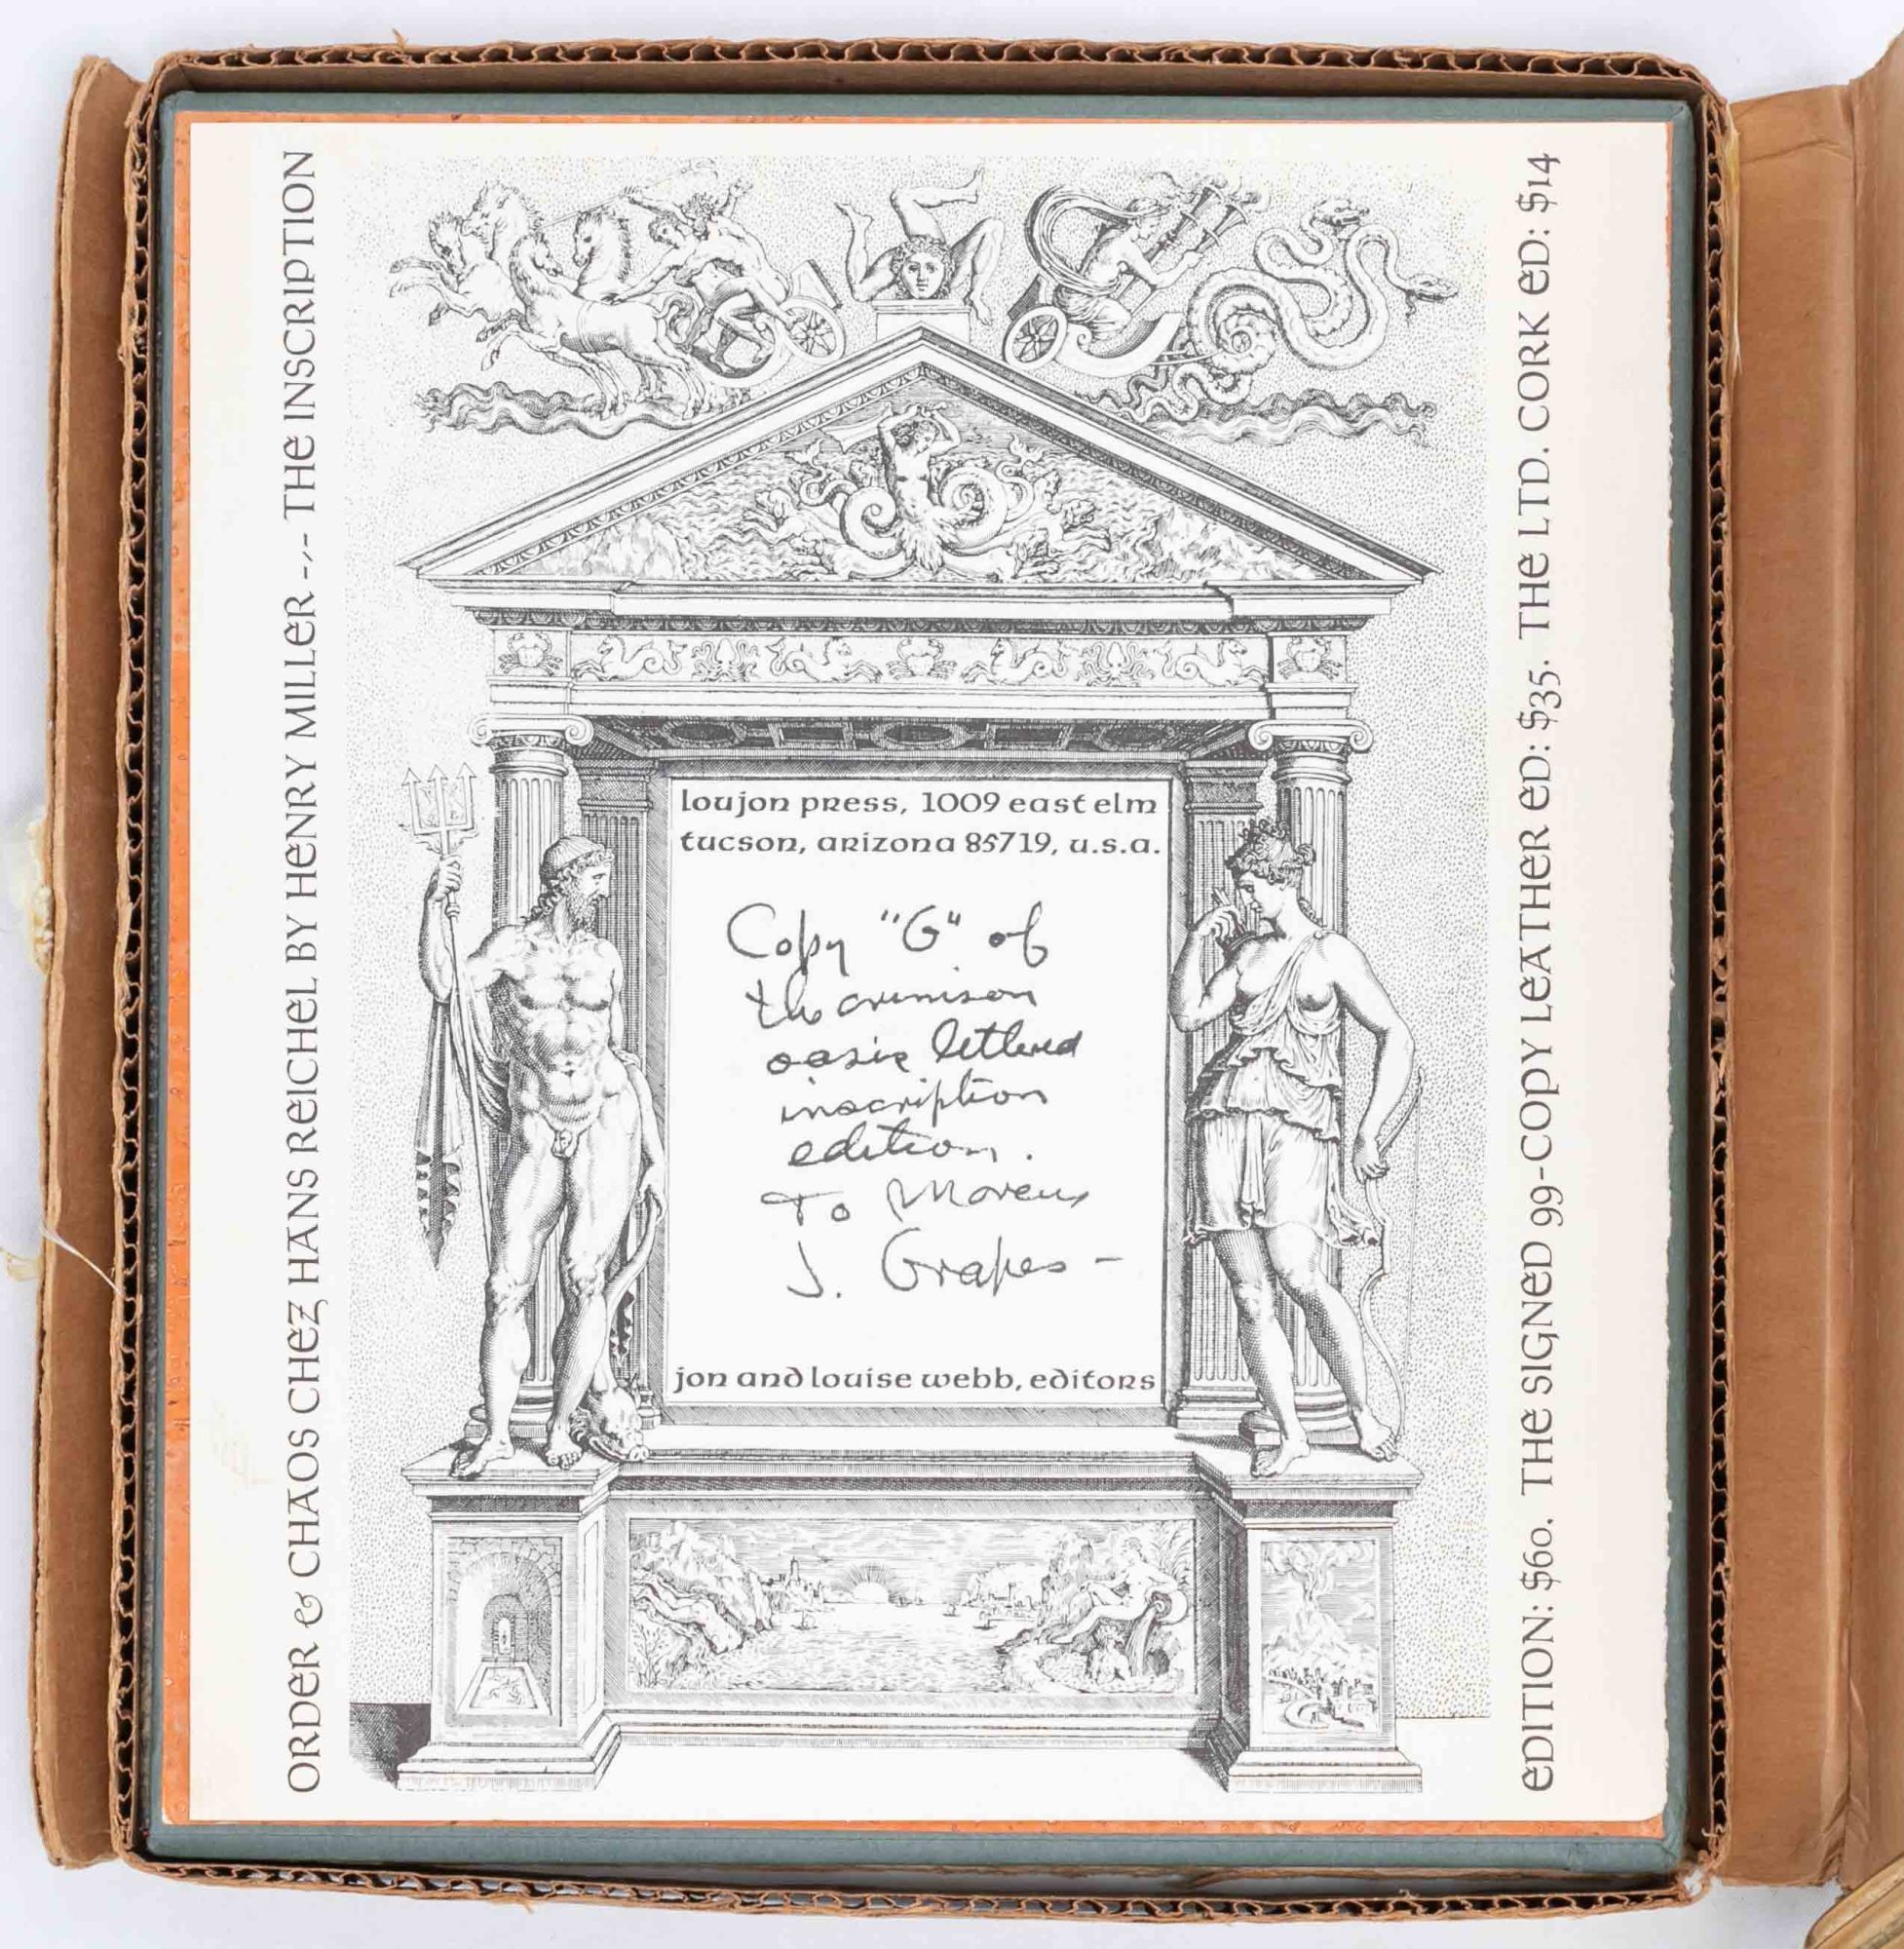 ORDER & CHAOS CHEZ HANS REICHEL BY HENRY MILLER -,- THE INSCRIPTION
loujon press, 1009 east elm
tucson, arizona 85719, u.s.a.
Copy "G" of
the crimson
oasis lettered
inscription
edition.
To Marcus
J. Grapes -
jon and louise webb, editors
EDITION: $60. THE SIGNED 99-COPY LEATHER ED: $35. THE LTD. CORK ED: $14